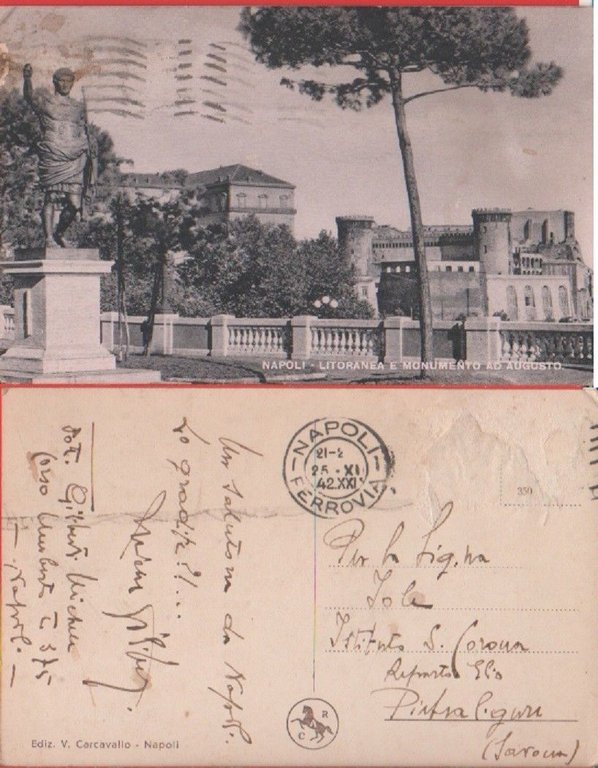 NAPOLI - LITORANEA E MONUMENTO AD AUGUSTO
NAPOLI
21-2
25 - XI
42.XXI
FERROVIA
350
Un saluto da Napoli.
Lo gradite?!...
Dot.
Corso Umberto I 375
- Napoli -
Per la Sig.na
Iole
Istituto S. Corona
Reparto Elio
Pietra Ligure
(Savona)
C R
Ediz. V. Carcavallo - Napoli